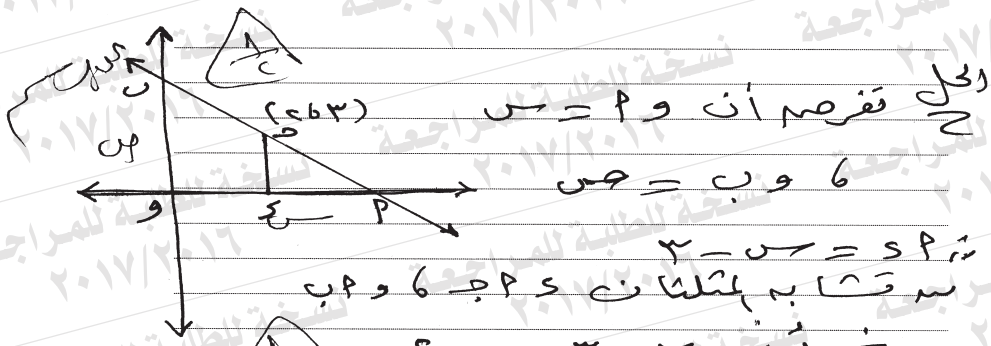 الحل نفرض أن و م = س
6 و ب = ص
∴ م د = س - ٣
من تشابه المثلثان د م جـ 6 و م ب
(٣ ، ٢)
جـ
ب
ص
و
د
س
م
٨
نسخة الطلبة للمراجعة
٢٠١٧/٢٠١٦